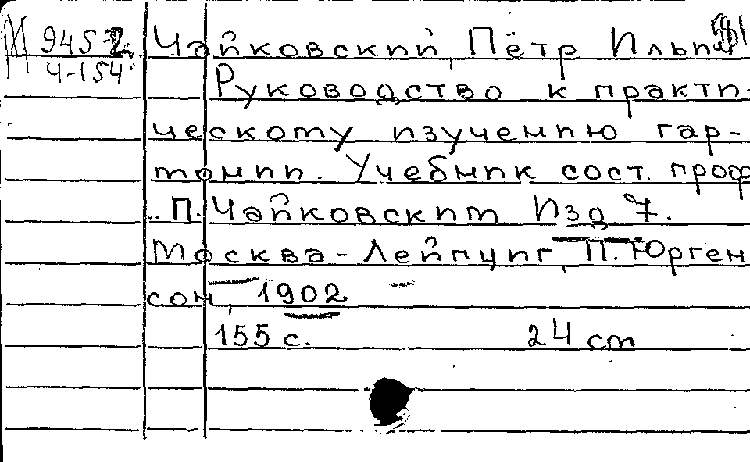 9452 Чайковский, Пётр Ильич
Ч-154
Руководство к практи-
ческому изучению гар-
монии. Учебник сост. проф
П. Чайковским Изд 7.
Москва-Лейпциг, П. Юрген
сон, 1902
155 с. 24 cm